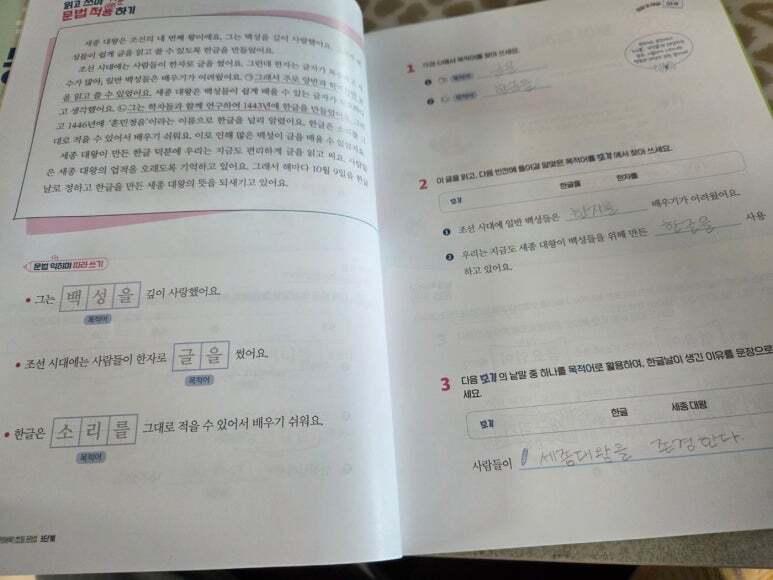 읽고 쓰며
문법 적용 하기
세종 대왕은 조선의 네 번째 왕이에요. 그는 백성을 깊이 사랑했어요.
성들이 쉽게 글을 읽고 쓸 수 있도록 한글을 만들었어요.
조선 시대에는 사람들이 한자로 글을 썼어요. 그런데 한자는 글자가
수가 많아, 일반 백성들은 배우기가 어려웠어요. ㉠그래서 주로 양반과
을 읽고 쓸 수 있었어요. 세종 대왕은 백성들이 쉽게 배울 수 있는 글자가
고 생각했어요. ㉡그는 학자들과 함께 연구하여 1443년에 한글을 만들었어요.
고 1446년에 '훈민정음'이라는 이름으로 한글을 널리 알렸어요. 한글은 소리를
대로 적을 수 있어서 배우기 쉬워요. 이로 인해 많은 백성이 글을 배울 수 있었지요.
세종 대왕이 만든 한글 덕분에 우리는 지금도 편리하게 글을 읽고 써요. 사람들
은 세종 대왕의 업적을 오래도록 기억하고 있어요. 그래서 해마다 10월 9일을 한글
날로 정하고 한글을 만든 세종 대왕의 뜻을 되새기고 있어요.
문법 익히며 따라 쓰기
• 그는 백성을 깊이 사랑했어요.
목적어
• 조선 시대에는 사람들이 한자로 글을 썼어요.
목적어
• 한글은 소리를 그대로 적을 수 있어서 배우기 쉬워요.
목적어
1 에서 목적어를 찾아 쓰세요.
❶ ㉠ 목적어 글을
❷ ㉡ 목적어 한글을
2 이 글을 읽고, 다음 빈칸에 들어갈 알맞은 목적어를 보기 에서 찾아 쓰세요.
보기 한글을 한자를
❶ 조선 시대에 일반 백성들은 한자를 배우기가 어려웠어요.
❷ 우리는 지금도 세종 대왕이 백성들을 위해 만든 한글을 사용
하고 있어요.
3 다음 보기 의 낱말 중 하나를 목적어로 활용하여, 한글날이 생긴 이유를 문장으로
세요.
보기 한글 세종 대왕
사람들이 세종대왕을 존경한다.